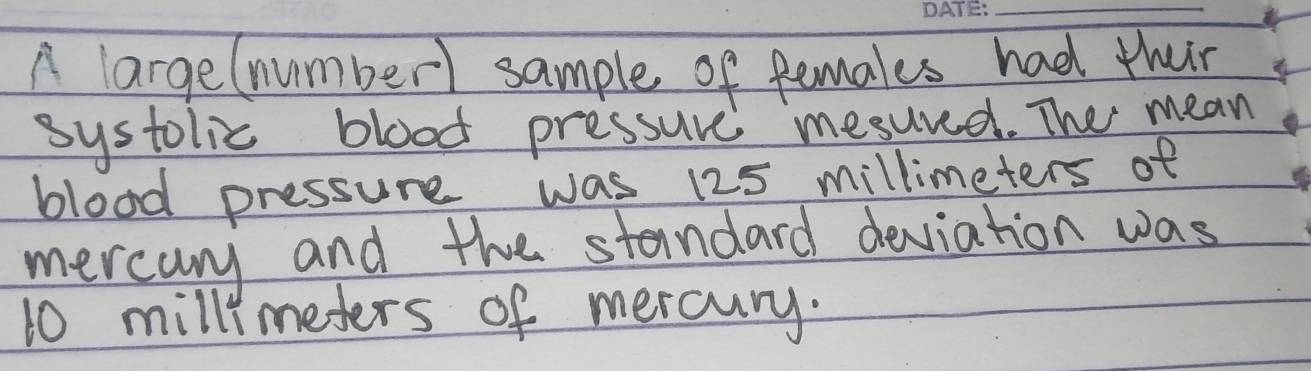 DATE:
A large(number) sample of females had their
systolic blood pressure mesured. The mean
blood pressure was 125 millimeters of
mercury and the standard deviation was
10 millimeters of mercury.